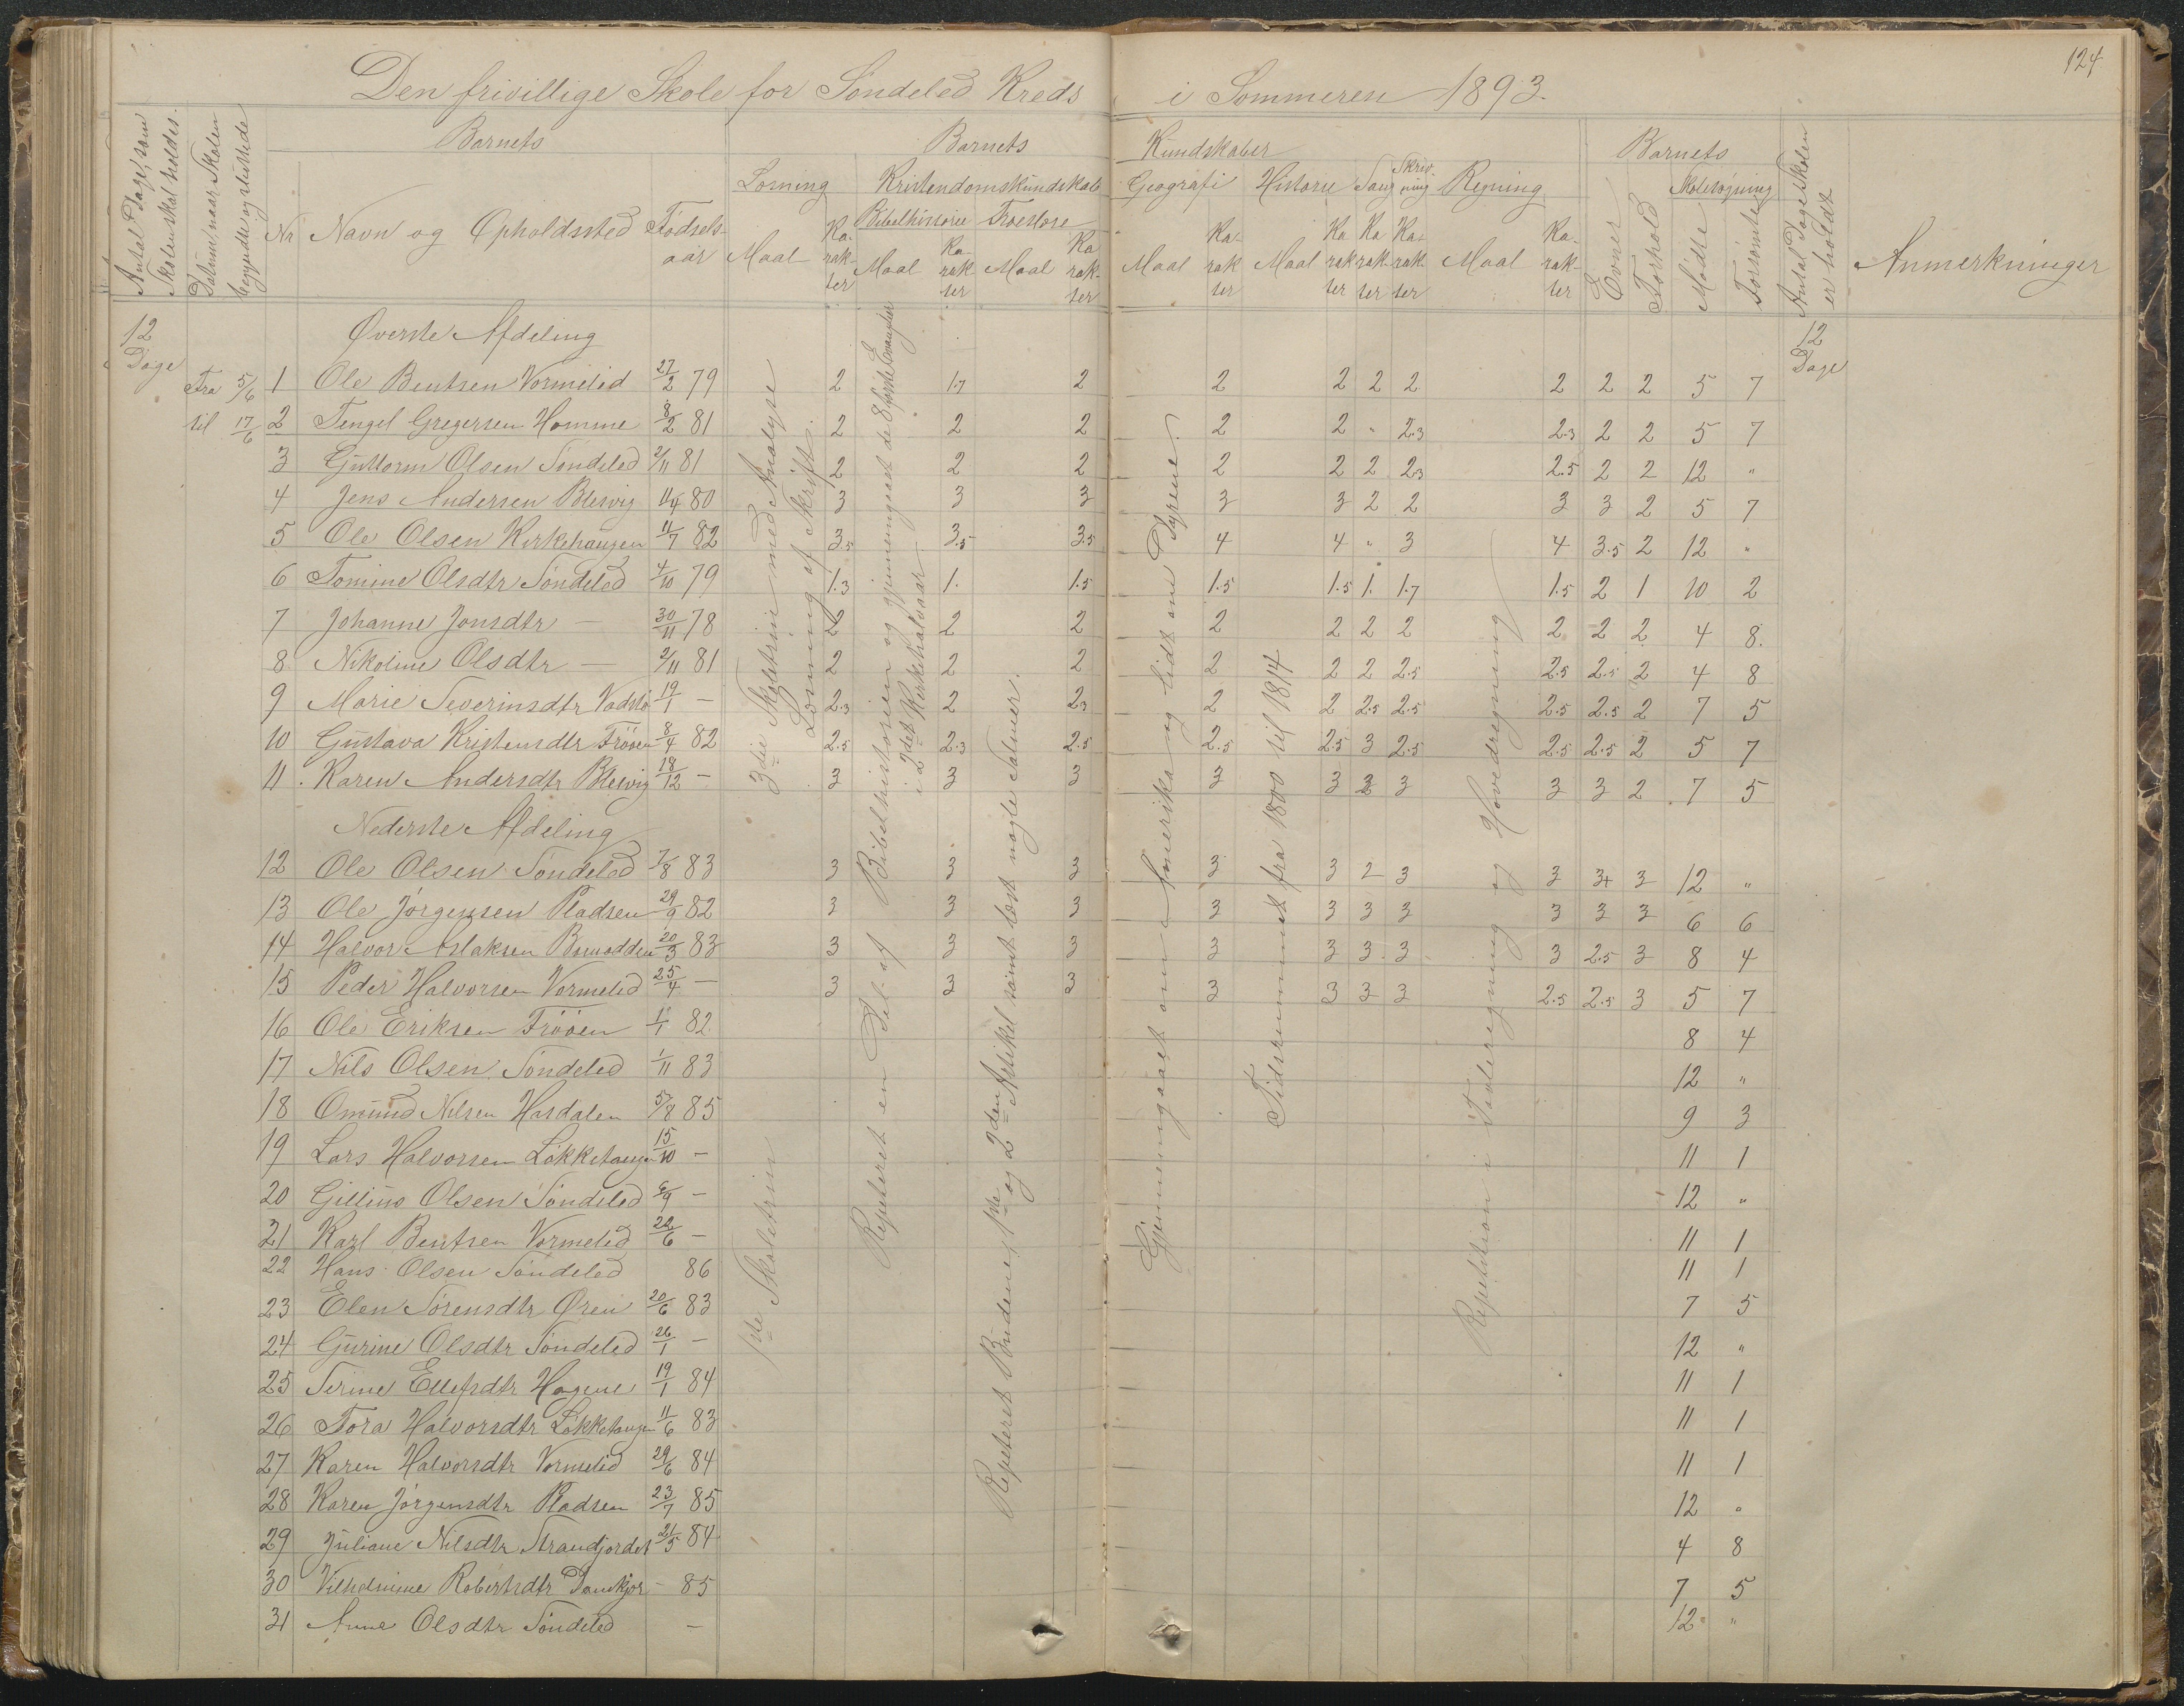 124
Den frivillige Skole for Söndeled Kreds i Sommeren 1893.
Antal Dage, som Skolen skal holdes.
Datum, naar Skolen begyndte og sluttede
Barnets
Barnets Kundskaber
Barnets
Antal Dage Skolen er holdt
Anmerkninger
Nr Navn og Opholdssted Fødselsaar
Læsning Kristendomskundskab Geografi Historie Sang Skrivning Regning
Bibelhistorie Troeslære
Maal Karakter Maal Karakter Maal Karakter Maal Karakter Maal Karakter Karakter Karakter Maal Karakter
Evner Forhold Skolesøgning Mødte Forsømte
12 Dage
Fra 5/6
til 17/6
12 Dage
Øverste Afdeling
1 Ole Bentsen Vormelid 27/2 79 2 1.7 2 2 2 2 2 2 2 2 5 7
2 Tengel Gregersen Homme 8/2 81 2 2 2 2 2 " 2.3 2.3 2 2 5 7
3 Guttorm Olsen Söndeled 2/11 81 2 2 2 2 2 2 2.3 2.5 2 2 12 "
4 Jens Andersen Blesvig 80 3 3 3 3 3 2 2 3 3 2 5 7
5 Ole Olsen Kirkehaugen 11/7 82 3.5 3.5 3.5 4 4 " 3 4 3.5 2 12 "
6 Tomine Olsdtr Söndeled 4/10 79 1.3 1. 1.5 1.5 1.5 1. 1.7 1.5 2 1 10 2
7 Johanne Jonsdtr — 30/11 78 2 2 2 2 2 2 2 2 2 2 4 8.
8 Nikoline Olsdtr — 2/11 81 2 2 2 2 2 2 2.5 2.5 2.5 2 4 8
9 Marie Severinsdtr 19/1 — 2.3 2 2.3 2 2 2.5 2.5 2.5 2.5 2 7 5
10 Gustava Kristensdtr Fröen 8/4 82 2.5 2.3 2.5 2.5 2.5 3 2.5 2.5 2.5 2 5 7
11 Karen Andersdtr Blesvig 18/12 — 3 3 3 3 3 2 3 3 3 2 7 5
Nederste Afdeling
12 Ole Olsen Söndeled 7/8 83 3 3 3 3 3 2 3 3 3+ 3 12 "
13 Ole Jörgensen Pladsen 29/9 82 3 3 3 3 3 3 3 3 3 3 6 6
14 Halvor Aslaksen 20/3 83 3 3 3 3 3 3 3 3 2.5 3 8 4
15 Peder Halvorsen Vormelid 25/4 — 3 3 3 3 3 3 3 2.5 2.5 3 5 7
16 Ole Eriksen Fröen 82 8 4
17 Nils Olsen Söndeled 1/11 83 12 "
18 Omund Nilsen Hasdalen 5/8 85 9 3
19 Lars Halvorsen Lökketangen 15/10 — 11 1
20 Gillius Olsen Söndeled — 12 "
21 Karl Bentsen Vormelid — 11 1
22 Hans Olsen Söndeled 86 11 1
23 Elen Sörensdtr Øren 20/6 83 7 5
24 Gurine Olsdtr Söndeled 26/1 — 12 "
25 Serine Ellefsdtr Hagene 19/1 84 11 1
26 Tora Halvorsdtr Lökketangen 11/6 83 11 1
27 Karen Halvorsdtr Vormelid 29/6 84 11 1
28 Karen Jörgensdtr Pladsen 23/7 85 12 "
29 Juliane Nilsdtr Strandjordet 21/5 84 4 8
30 Vilhelmine Robertsdtr – 85 7 5
31 Anne Olsdtr Söndeled – 12 "
3die Skoletrin med Analyse
Læsning af Skrift.
1ste Skoletrin
Repeteret en Del af Bibelhistorien og gjennemgaaet de 8 første Evangelier
i 2det Kirkehalvaar
Repeteret Budene, 1ste og 2den Artikel samt læst nogle Salmer.
Gjennemgaaet om Amerika og lidt om Dyrene.
Tidsrummet fra 1800 til 1814
Repetition i Tavleregning og Hovedregning